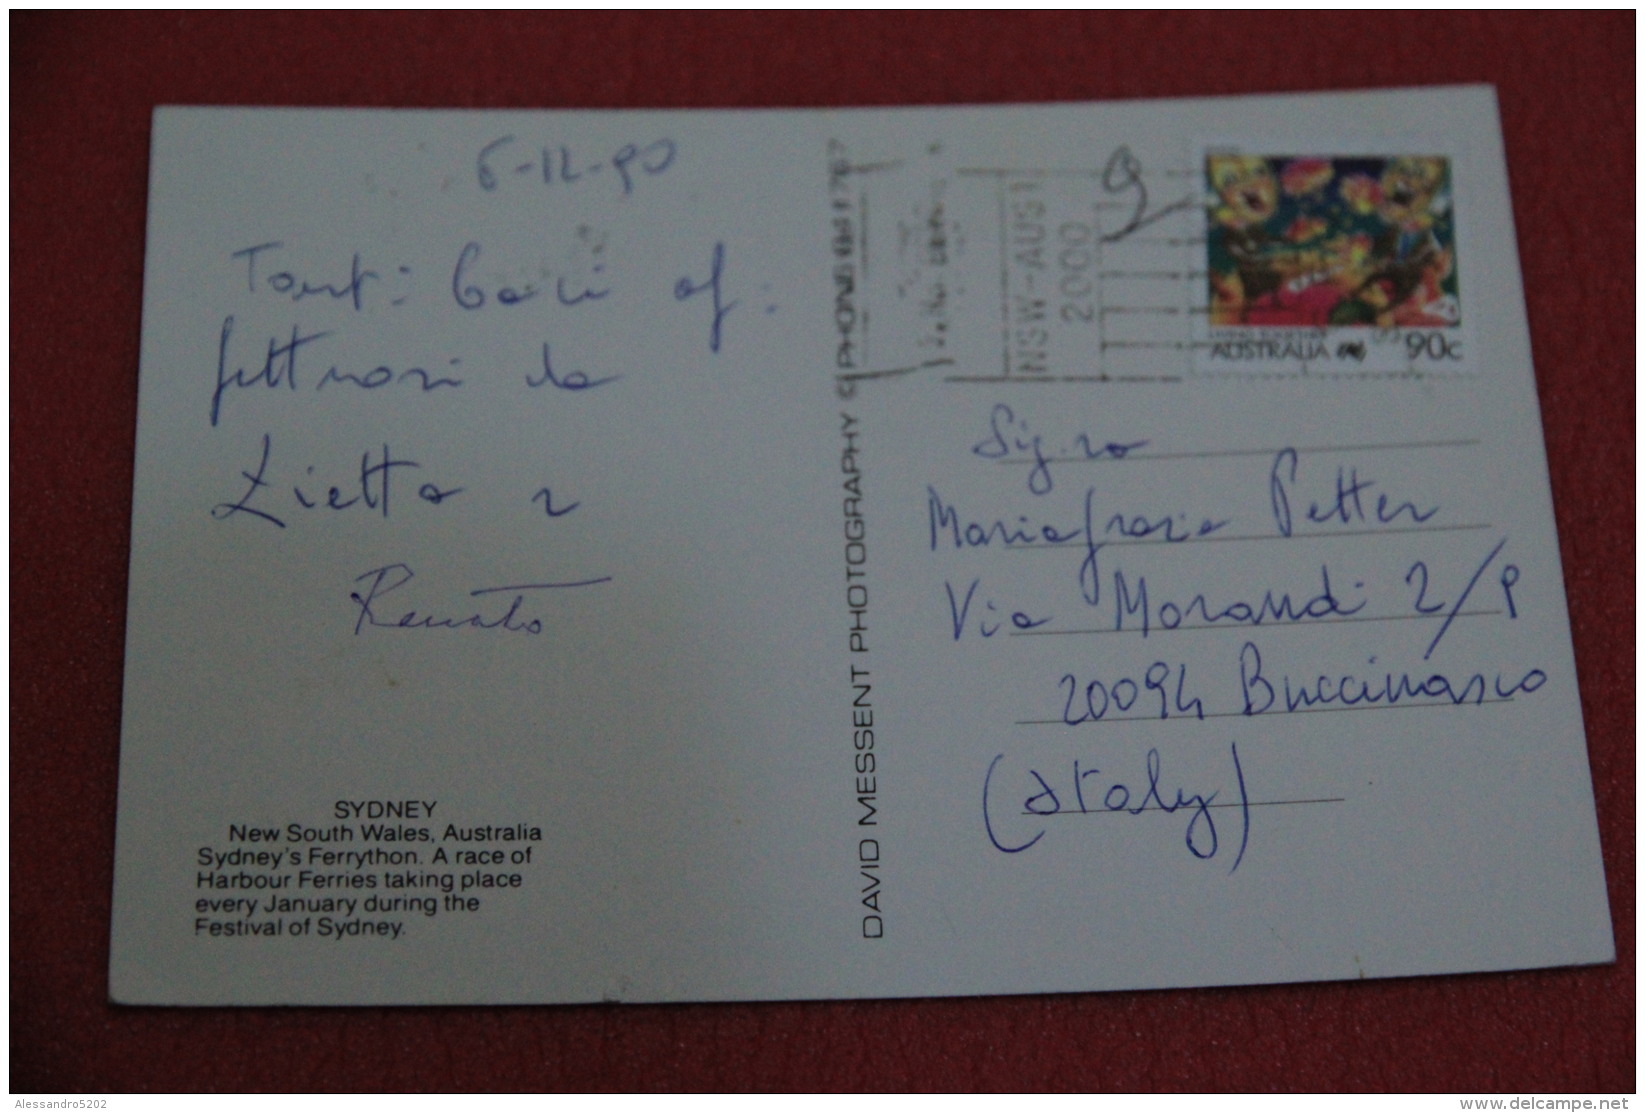 6-12-90
Tanti baci af:
fettuosi da
Zietta e
Renato
SYDNEY
New South Wales, Australia
Sydney's Ferrython. A race of
Harbour Ferries taking place
every January during the
Festival of Sydney.
DAVID MESSENT PHOTOGRAPHY © PHONE
NSW-AUST
2000
AUSTRALIA 90c
Sig.ra
Mariagrazia Petter
Via Morandi 2/P
20094 Buccinasco
(Italy)
Alessandro5202
delcampe.net